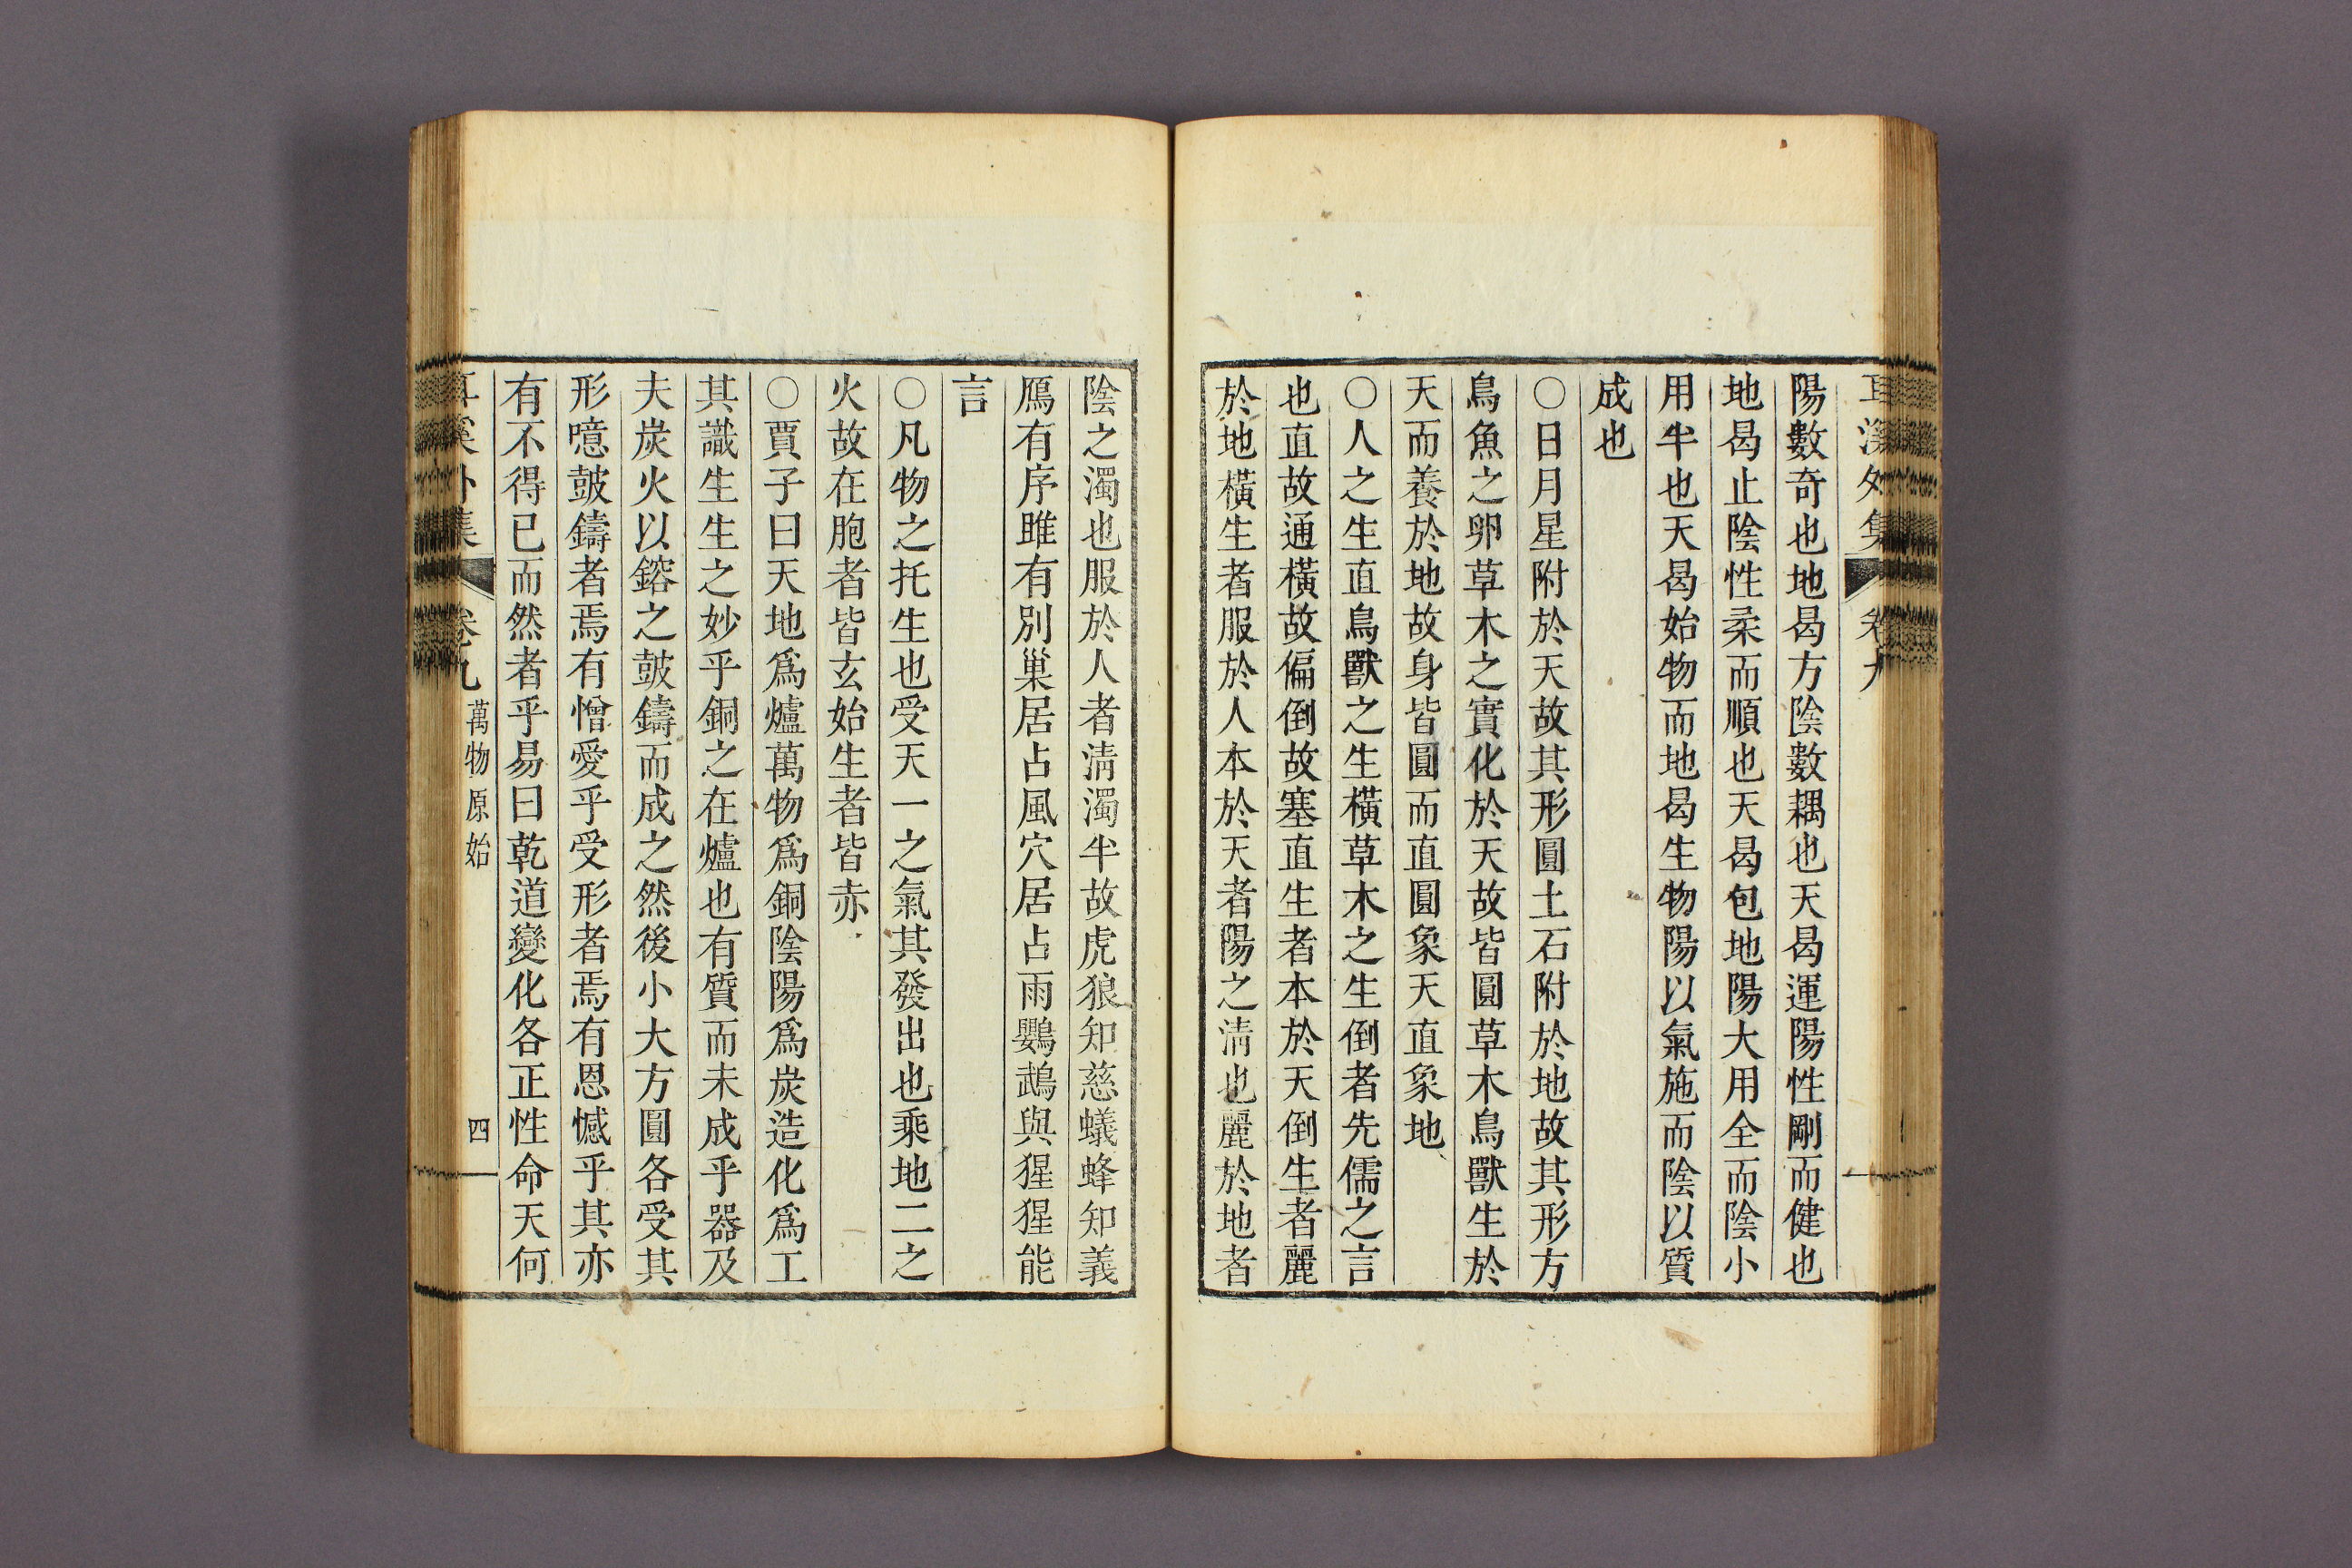 耳溪外集 卷九
陽數奇也地曷方陰數耦也天曷運陽性剛而健也
地曷止陰性柔而順也天曷包地陽大用全而陰小
用半也天曷始物而地曷生物陽以氣施而陰以質
成也
○日月星附於天故其形圓土石附於地故其形方
鳥魚之卵草木之實化於天故皆圓草木鳥獸生於
天而養於地故身皆圓而直圓象天直象地
○人之生直鳥獸之生橫草木之生倒者先儒之言
也直故通橫故偏倒故塞直生者本於天倒生者麗
於地橫生者服於人本於天者陽之淸也麗於地者
陰之濁也服於人者淸濁半故虎狼知慈蟻蜂知義
鴈有序雎有別巢居占風穴居占雨鸚鵡與猩猩能
言
○凡物之托生也受天一之氣其發出也乘地二之
火故在胞者皆玄始生者皆赤
○賈子曰天地爲爐萬物爲銅陰陽爲炭造化爲工
其識生生之妙乎銅之在爐也有質而未成乎器及
夫炭火以鎔之皷鑄而成之然後小大方圓各受其
形噫皷鑄者焉有憎愛乎受形者焉有恩憾乎其亦
有不得已而然者乎易曰乾道變化各正性命天何
耳溪外集 卷九 萬物原始 四